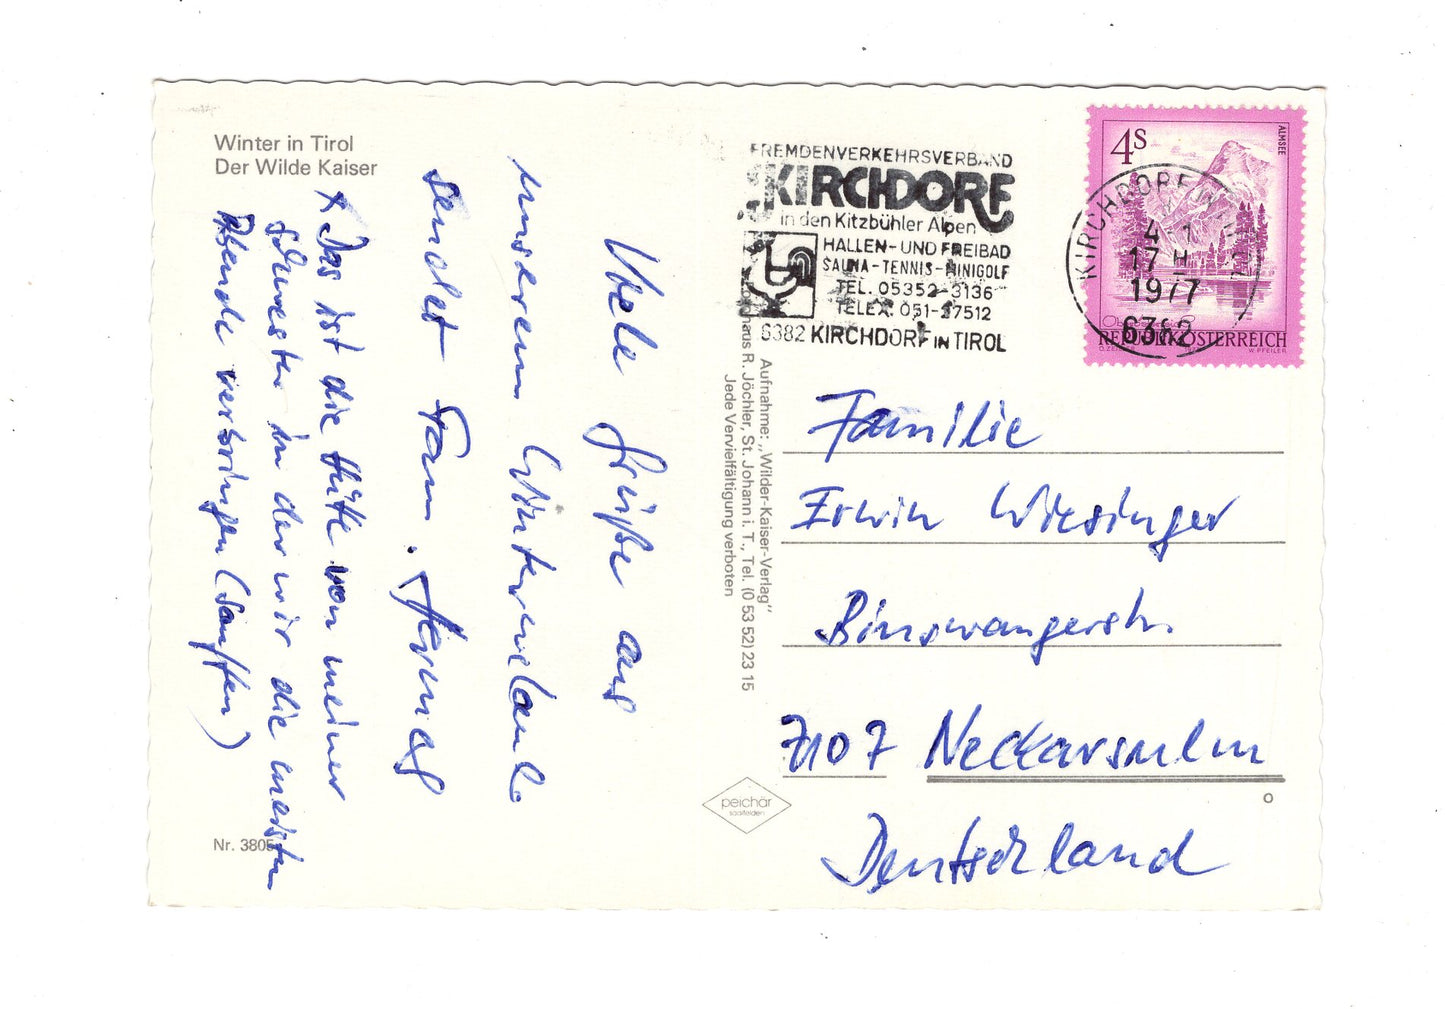 Winter in Tirol
Der Wilde Kaiser
Viele Grüße aus
unserem Winterurlaub
sendet Fam.
x Das ist die Hütte von meiner
Schwester in der wir die meisten
Abende verbringen (Sauffen)
Nr. 3805
peichär
saalfelden
Aufnahme: „Wilder-Kaiser-Verlag"
R. Jöchler, St. Johann i. T., Tel. (0 53 52) 23 15
Jede Vervielfältigung verboten
FREMDENVERKEHRSVERBAND
KIRCHDORF
in den Kitzbühler Alpen
HALLEN-UND FREIBAD
SAUNA-TENNIS-MINIGOLF
TEL. 05352-3136
TELEX. 051-27512
6382 KIRCHDORF IN TIROL
4S
ALMSEE
REPUBLIK ÖSTERREICH
W. PFEILER
KIRCHDORF IN TIROL
17 H
1977
6382
Familie
Erwin Wiesinger
Binswangerstr.
7107 Neckarsulm
o
Deutschland